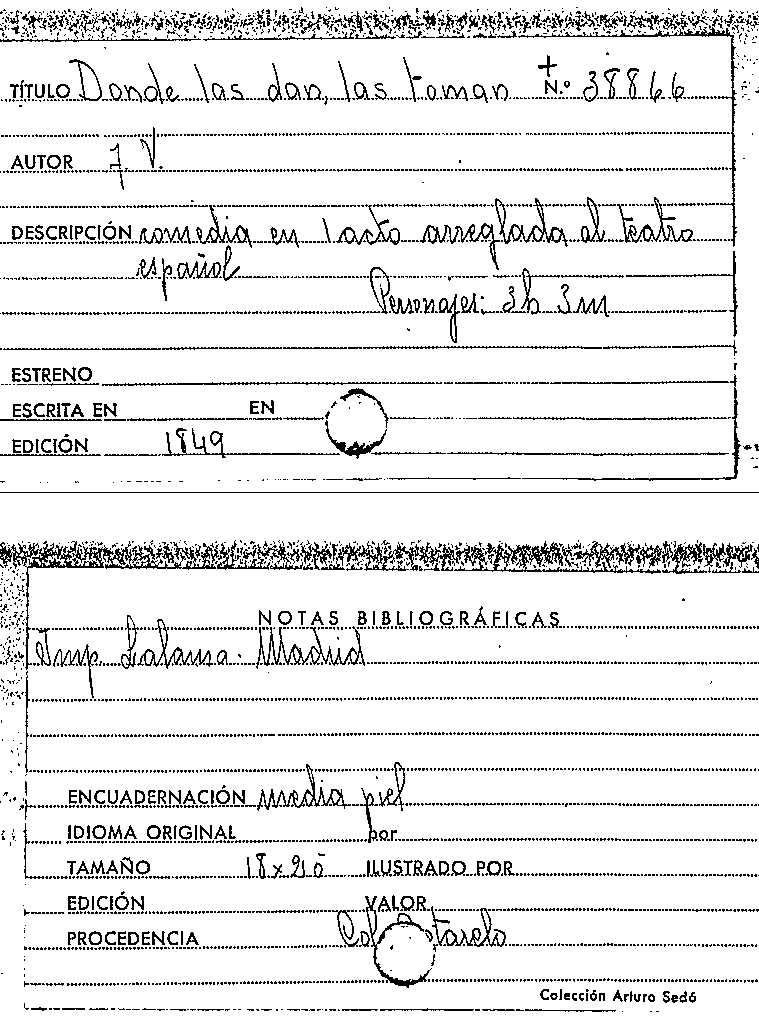 TÍTULO Donde las dan, las toman + N.º 38866
AUTOR J V.
DESCRIPCIÓN comedia en 1 acto arreglada al teatro
español
Personajes: 3h 3m
ESTRENO
ESCRITA EN EN
EDICIÓN 1849
NOTAS BIBLIOGRÁFICAS
Imp Lalama. Madrid
ENCUADERNACIÓN media piel
IDIOMA ORIGINAL por
TAMAÑO ILUSTRADO POR
EDICIÓN VALOR
PROCEDENCIA Col Cotarelo
Colección Arturo Sedó